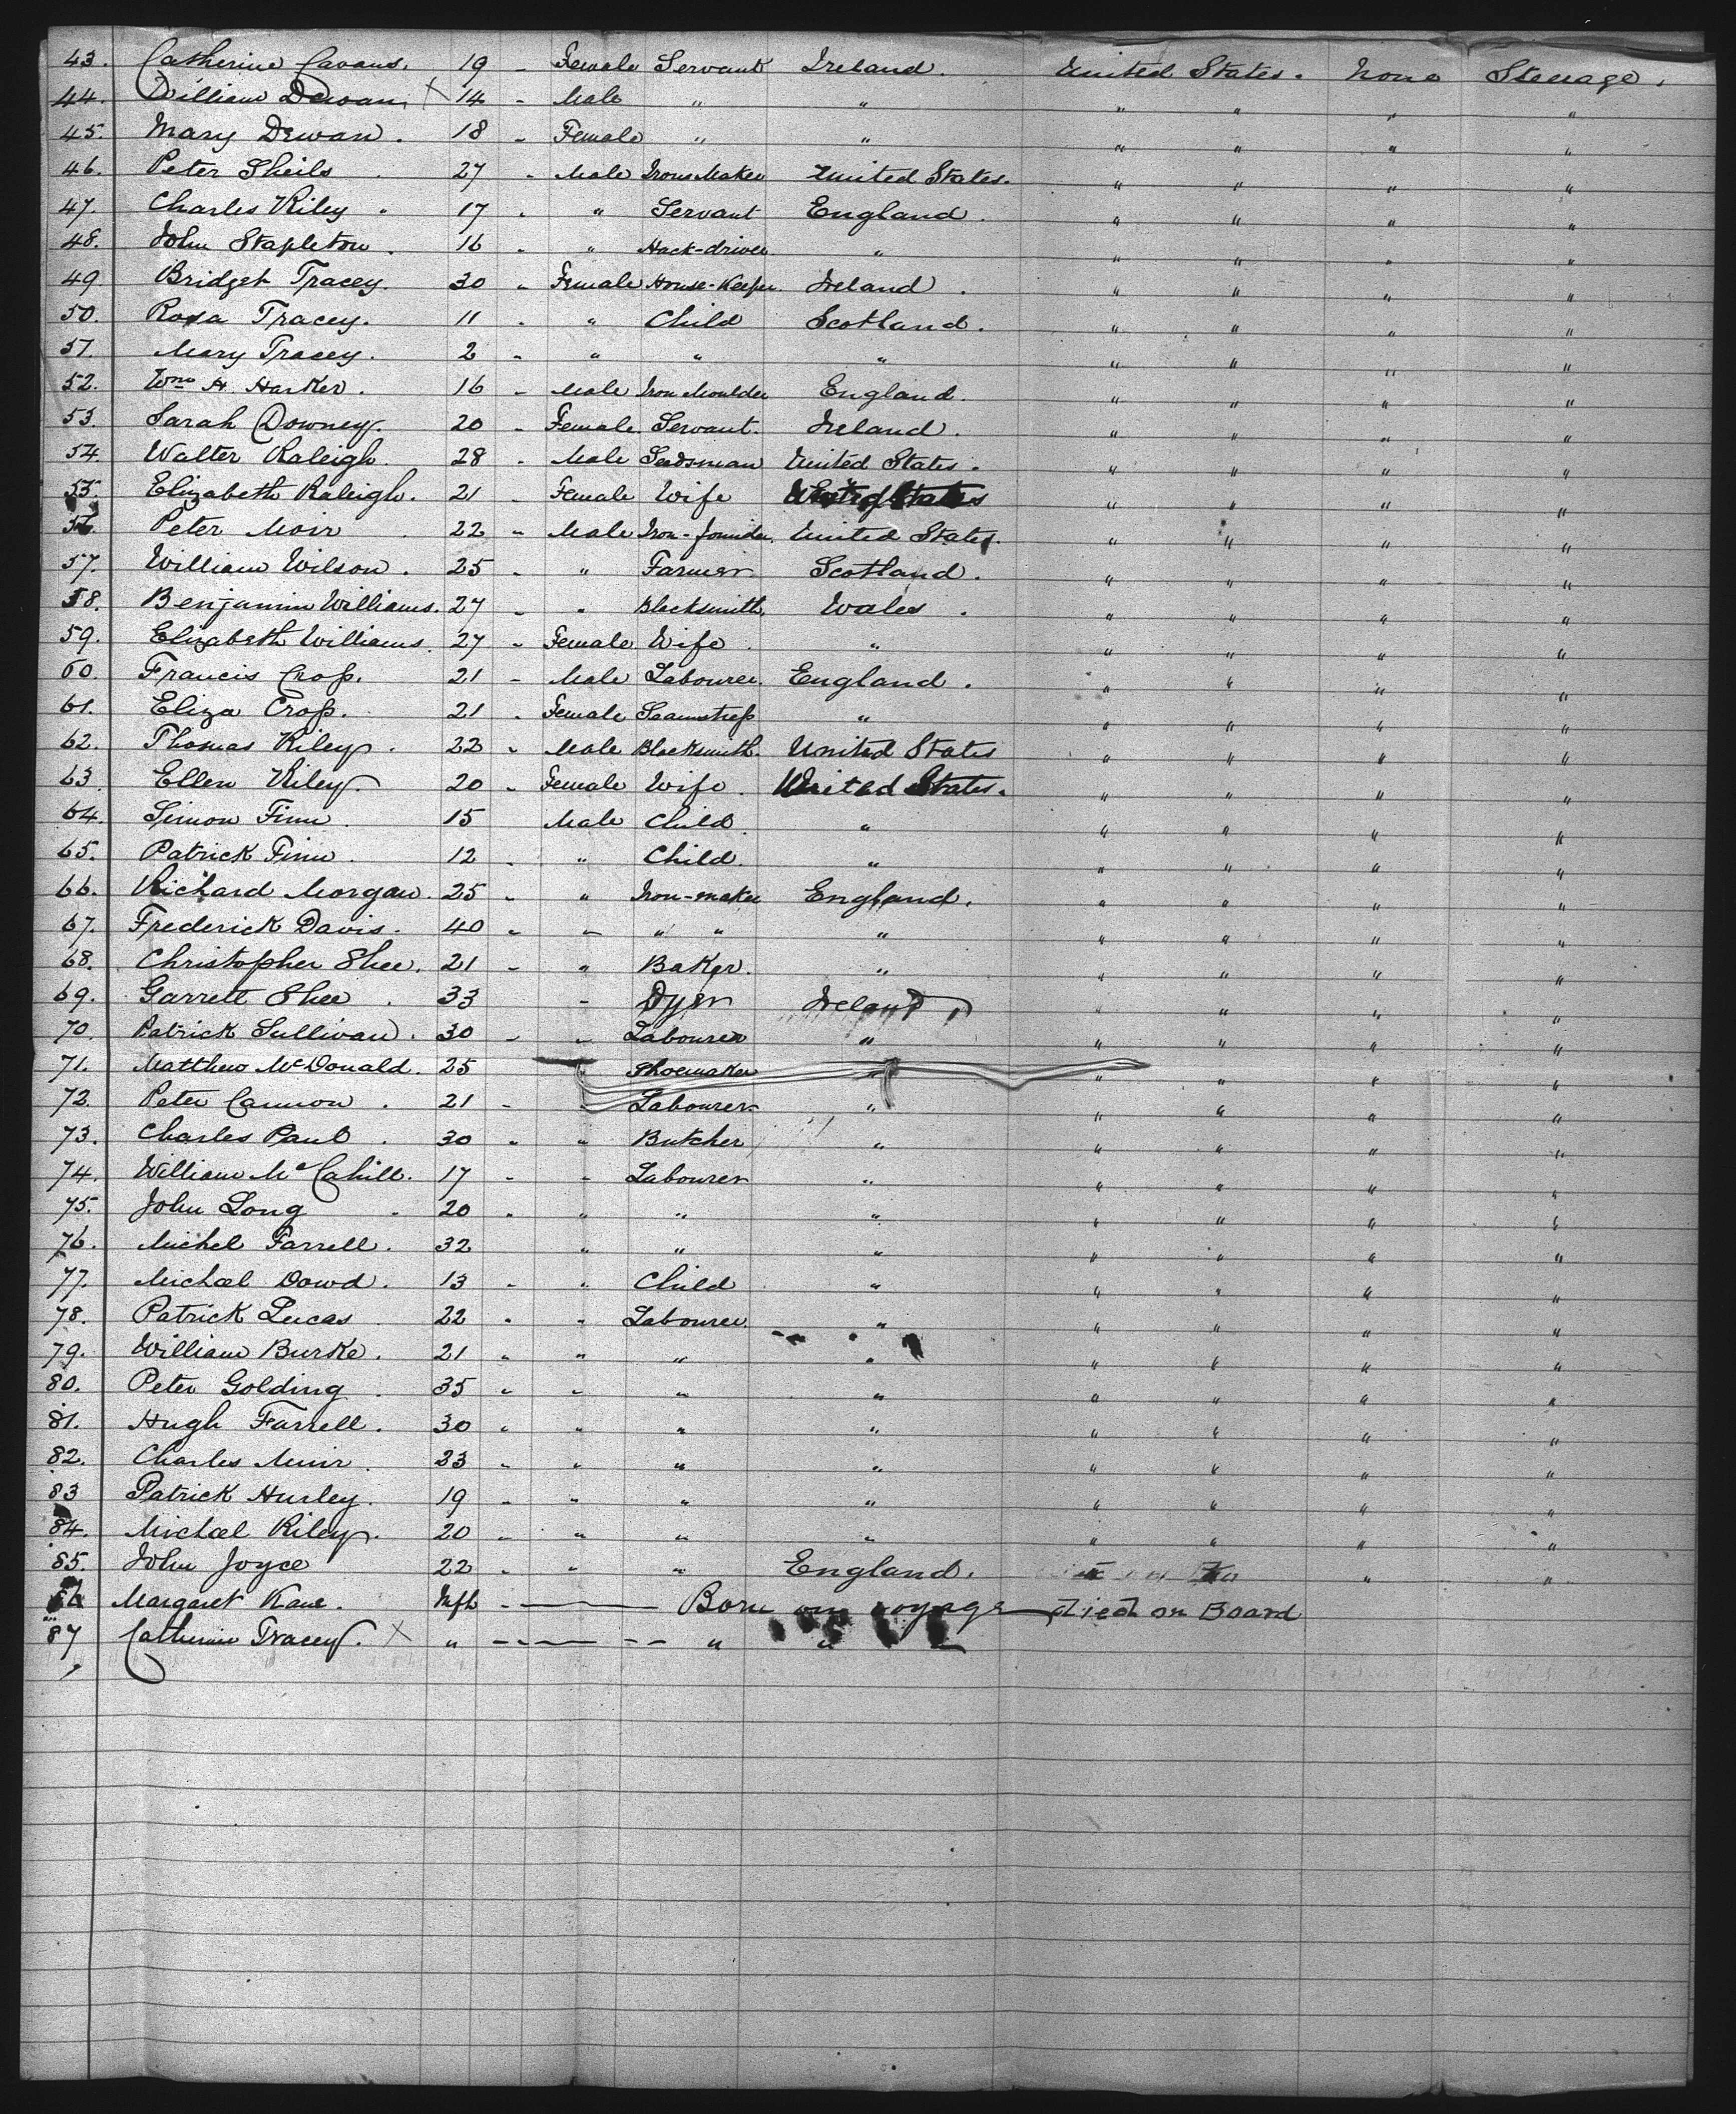 43. Catherine Cavans. 19 - Female Servant Ireland. United States. None Steerage.
44. William Dewan X 14 - Male " " " " " "
45. Mary Dewan. 18 - Female " " " " " "
46. Peter Sheils. 27 - Male Iron Maker United States. " " " "
47. Charles Riley. 17 - " Servant England. " " " "
48. John Stapleton. 16 - " Hack-driver " " " " "
49. Bridget Tracey. 30 - Female House-Keeper. Ireland. " " " "
50. Rosa Tracey. 11 - " Child Scotland. " " " "
51. Mary Tracey. 2 - " " " " " " "
52. Wm H. Harker. 16 - Male Iron Moulder England. " " " "
53. Sarah Downey. 20 - Female Servant. Ireland. " " " "
54. Walter Raleigh. 28 - Male Seedsman United States. " " " "
55. Elizabeth Raleigh. 21 - Female Wife United States " " " "
56. Peter Moir. 22 - Male Iron-founder, United States. " " " "
57. William Wilson. 25 - " Farmer Scotland. " " " "
58. Benjamin Williams. 27 - " Blacksmith, Wales. " " " "
59. Elizabeth Williams. 27 - Female Wife. " " " " "
60. Francis Cross. 21 - Male Labourer. England. " " " "
61. Eliza Cross. 21 - Female Seamstress " " " " "
62. Thomas Riley. 22 - Male Blacksmith. United States " " " "
63. Ellen Riley. 20 - Female Wife. United States. " " " "
64. Simon Finn. 15 Male Child. " " " " "
65. Patrick Finn. 12 - " Child. " " " " "
66. Richard Morgan. 25 - " Iron-maker England. " " " "
67. Frederick Davis. 40 - " " " " " " " "
68. Christopher Shee. 21 - " Baker. " " " " "
69. Garrett Shee. 33 " Dyer Ireland " " " "
70. Patrick Sullivan. 30 - " Labourer " " " " "
71. Matthew McDonald. 25 Shoemaker " " " " "
72. Peter Cannon. 21 - " Labourer " " " " "
73. Charles Paul. 30 - " Butcher " " " " "
74. William McCahill. 17 - " Labourer " " " " "
75. John Long. 20 - " " " " " " "
76. Michel Farrell. 32 " " " " " " "
77. Michael Dowd. 13 - " Child " " " " "
78. Patrick Lucas. 22 - " Labourer. " " " " "
79. William Burke. 21 - " " " " " " "
80. Peter Golding. 35 - " " " " " " "
81. Hugh Farrell. 30 - " " " " " " "
82. Charles Muir. 33 - " " " " " " "
83 Patrick Hurley. 19 - " " " " " " "
84. Michael Riley. 20 - " " " " " " "
85. John Joyce 22 - " " England. " "
86 Margaret Kane. Inft - Born on voyage - Died on Board
87 Catherine Tracey. X " - " "